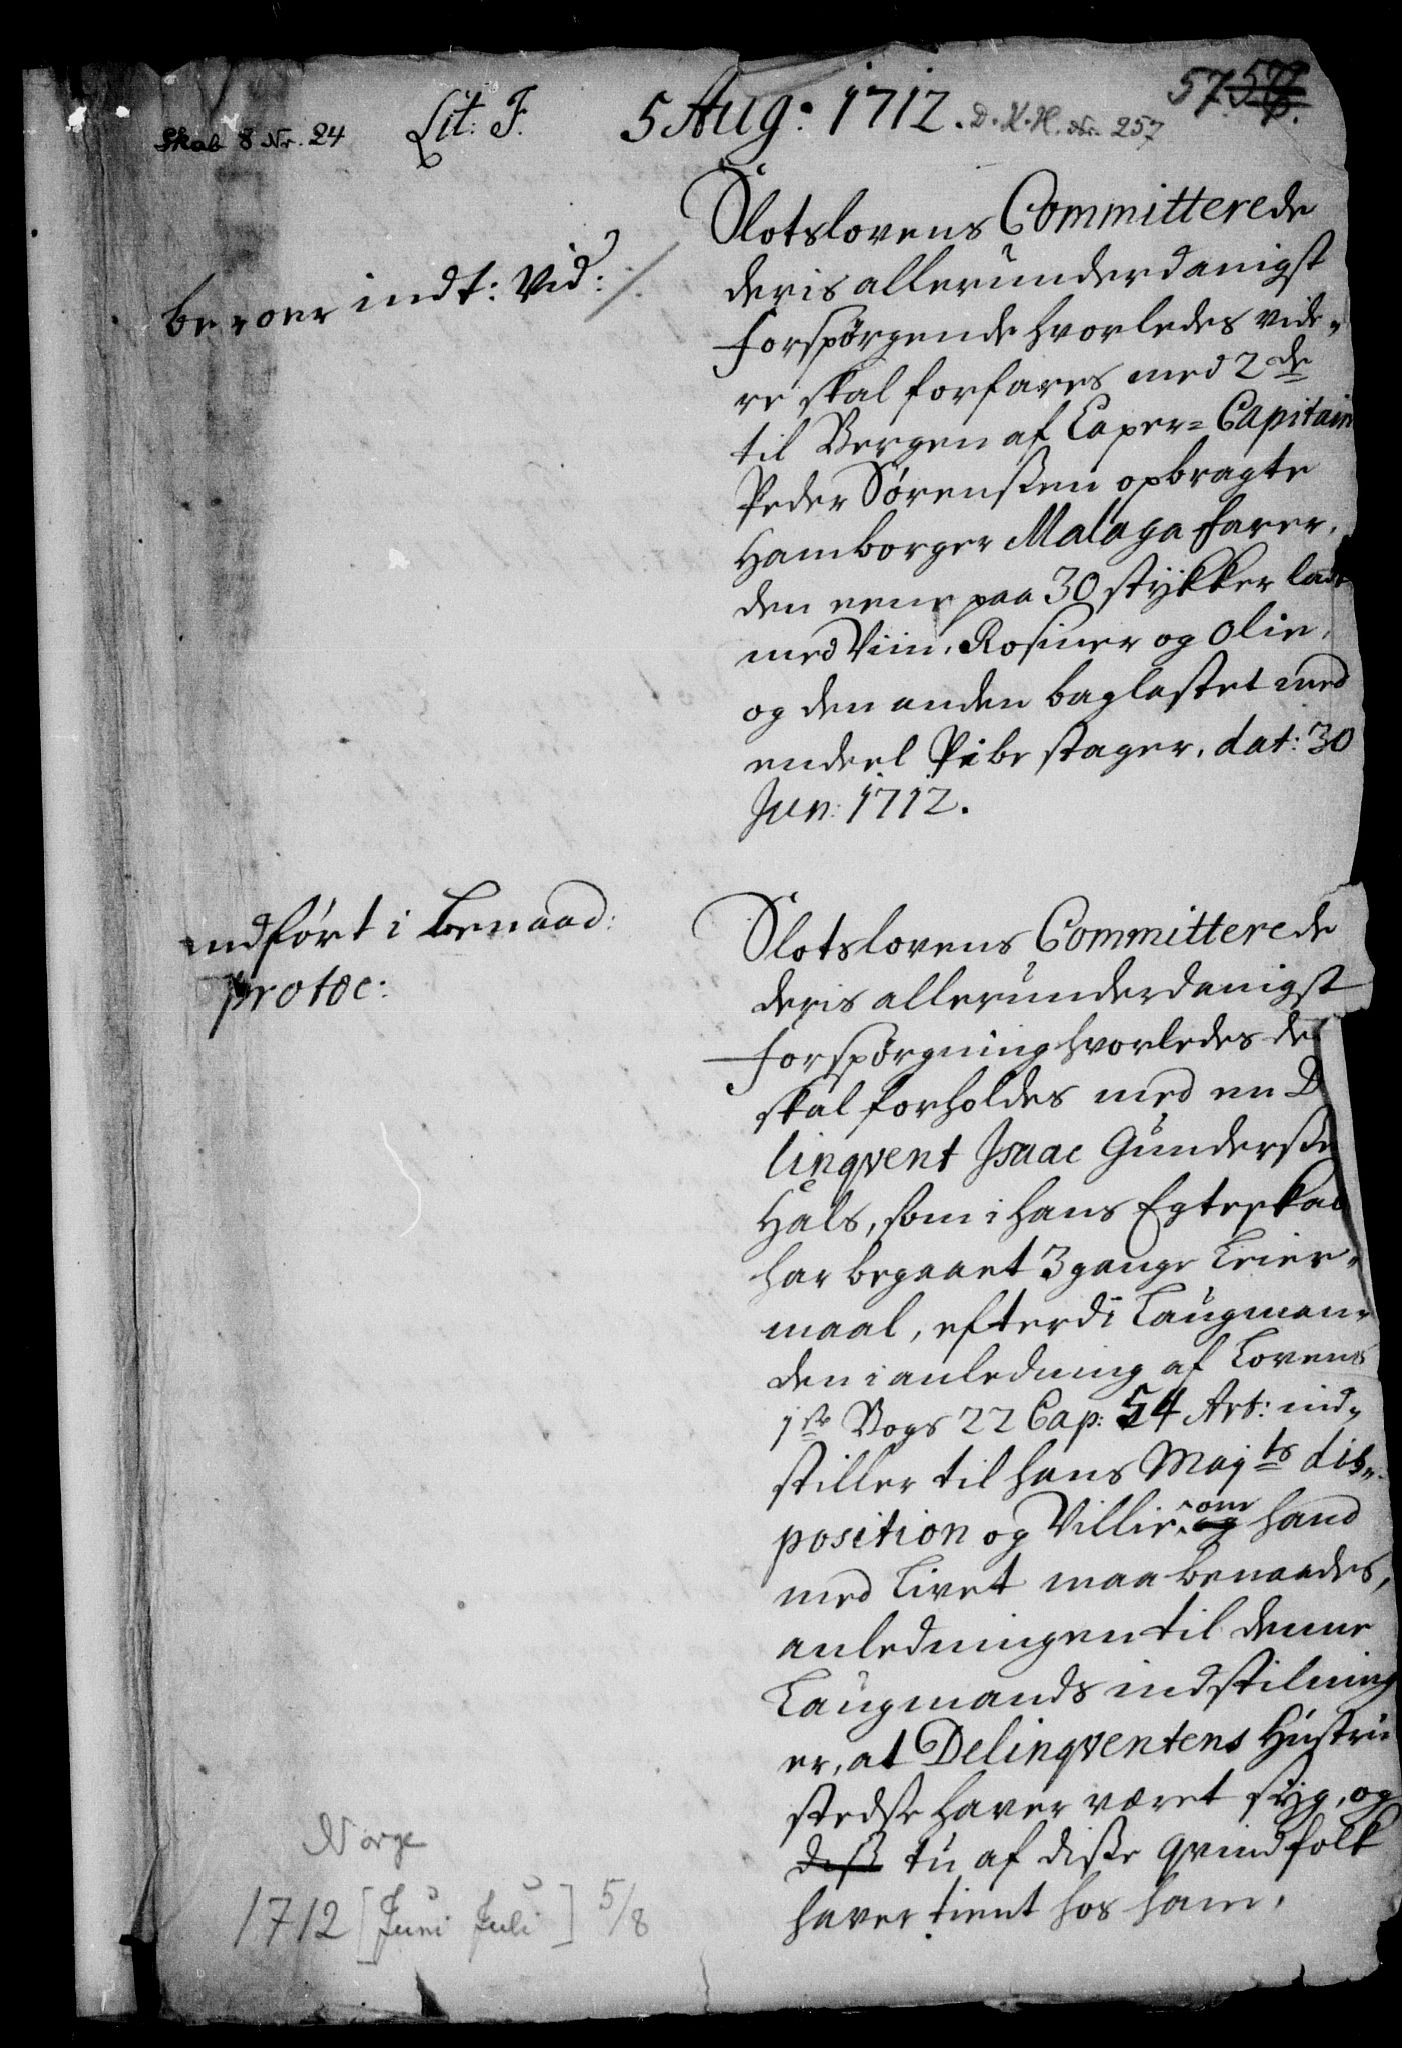 Skab 8 Nr. 24
Lit: F.
5 Aug: 1712.
D. K. H. Nr. 257
57.
beroer indt: Vid: ·/.
Slotslovens Committerede
deris allerunderdanigst
forspørgende hvorledes vide-
re skal forfares med 2de
til Bergen af Caper= Capitain
Peder Sørenssen opbragte
Hamborger Malaga farer,
den eene paa 30 stykker ladt
med Viin, Rosiner og Olie,
og den anden baglastet med
endeel Pibe stager, dat: 30
Jun: 1712.
indført i Benaad:
protoc:
Slotslovens Committerede
deris allerunderdanigst
forspørgning hvorledes de
skal forholdes med en D
linqvent Isaac Gunderssen
Hals, som i hans Egteskab
har begaaet 3 gange Leier-
maal, efterdi Laugman-
den i anledning af Lovens
1ste Bogs 22 Cap: 54 Art: ind-
stiller til hans Majts dis-
position og Villie, om og hand
med Livet maa benaades,
anledningen til denne
Laugmands indstilning
er, at Delinqventens Hustru
stedse haver været syg, og
diss tu af disse qvindfolk
haver tient hos ham.
Norge
1712 [Juni Juli] 5/8